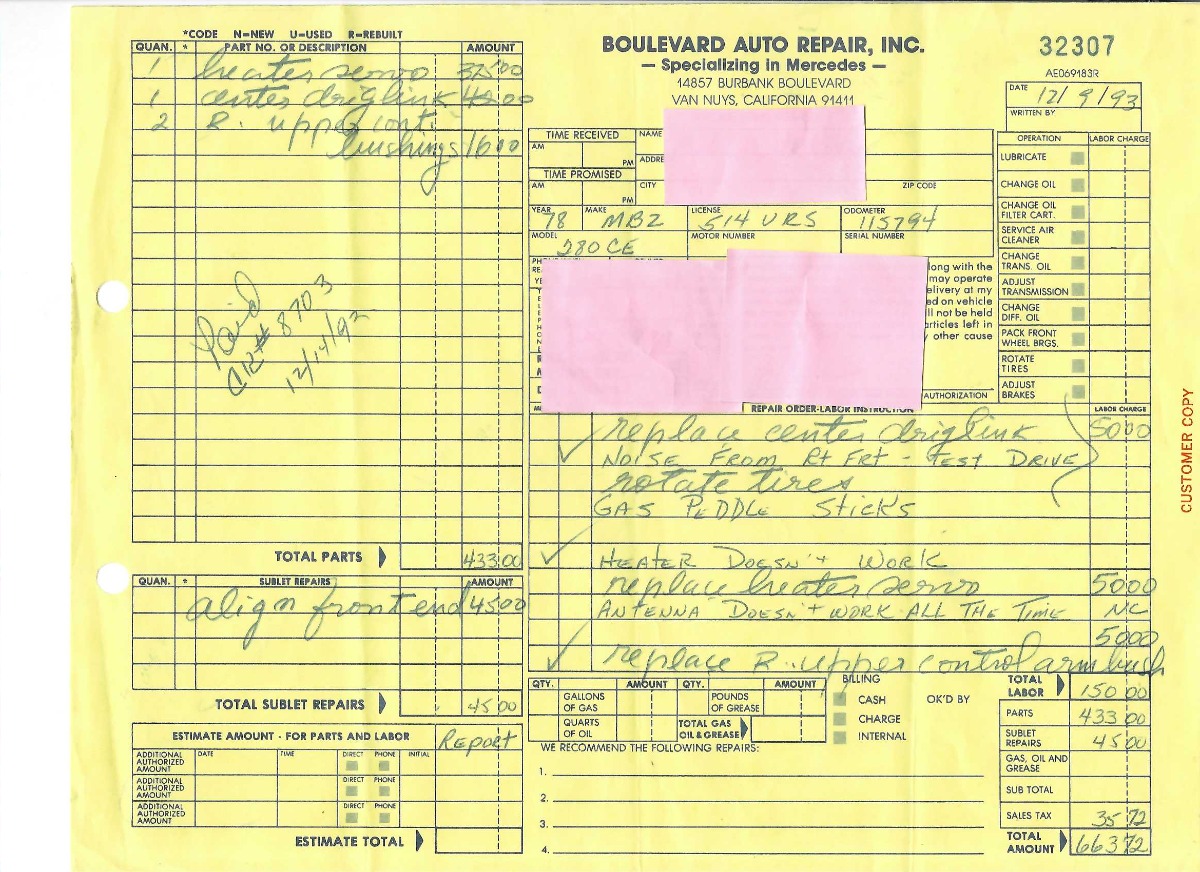 *CODE N=NEW U=USED R=REBUILT
QUAN. * PART NO. OR DESCRIPTION AMOUNT
1 heater servo 375 00
1 center draglink 42 00
2 R. upper cont.
bushings 16 00
Paid
CK# 8703
12/14/93
TOTAL PARTS 433 00
QUAN. * SUBLET REPAIRS AMOUNT
align front end 45 00
TOTAL SUBLET REPAIRS 45 00
ESTIMATE AMOUNT - FOR PARTS AND LABOR Report
ADDITIONAL AUTHORIZED AMOUNT DATE TIME DIRECT PHONE INITIAL
ADDITIONAL AUTHORIZED AMOUNT DIRECT PHONE
ADDITIONAL AUTHORIZED AMOUNT DIRECT PHONE
ESTIMATE TOTAL
BOULEVARD AUTO REPAIR, INC.
— Specializing in Mercedes —
14857 BURBANK BOULEVARD
VAN NUYS, CALIFORNIA 91411
32307
AE069183R
DATE 12/9/93
WRITTEN BY
TIME RECEIVED NAME
AM PM ADDRE
TIME PROMISED
AM PM CITY ZIP CODE
YEAR 78 MAKE MBZ LICENSE 514 URS ODOMETER 115794
MODEL 280CE MOTOR NUMBER SERIAL NUMBER
long with the
may operate
elivery at my
ed on vehicle
ll not be held
articles left in
y other cause
AUTHORIZATION
OPERATION LABOR CHARGE
LUBRICATE
CHANGE OIL
CHANGE OIL FILTER CART.
SERVICE AIR CLEANER
CHANGE TRANS. OIL
ADJUST TRANSMISSION
CHANGE DIFF. OIL
PACK FRONT WHEEL BRGS.
ROTATE TIRES
ADJUST BRAKES
REPAIR ORDER-LABOR INSTRUCTION LABOR CHARGE
replace center draglink 50 00
NOISE FROM Rt FRT - TEST DRIVE
rotate tires
GAS PEDDLE STICKS
HEATER DOESN'T WORK
replace heater servo 50 00
ANTENNA DOESN'T WORK ALL THE TIME NC
50 00
replace R. upper control arm bush
QTY. AMOUNT QTY. AMOUNT
GALLONS OF GAS POUNDS OF GREASE
QUARTS OF OIL TOTAL GAS OIL & GREASE
BILLING
CASH OK'D BY
CHARGE
INTERNAL
WE RECOMMEND THE FOLLOWING REPAIRS:
1.
2.
3.
4.
TOTAL LABOR 150 00
PARTS 433 00
SUBLET REPAIRS 45 00
GAS, OIL AND GREASE
SUB TOTAL
SALES TAX 35 72
TOTAL AMOUNT 663 72
CUSTOMER COPY